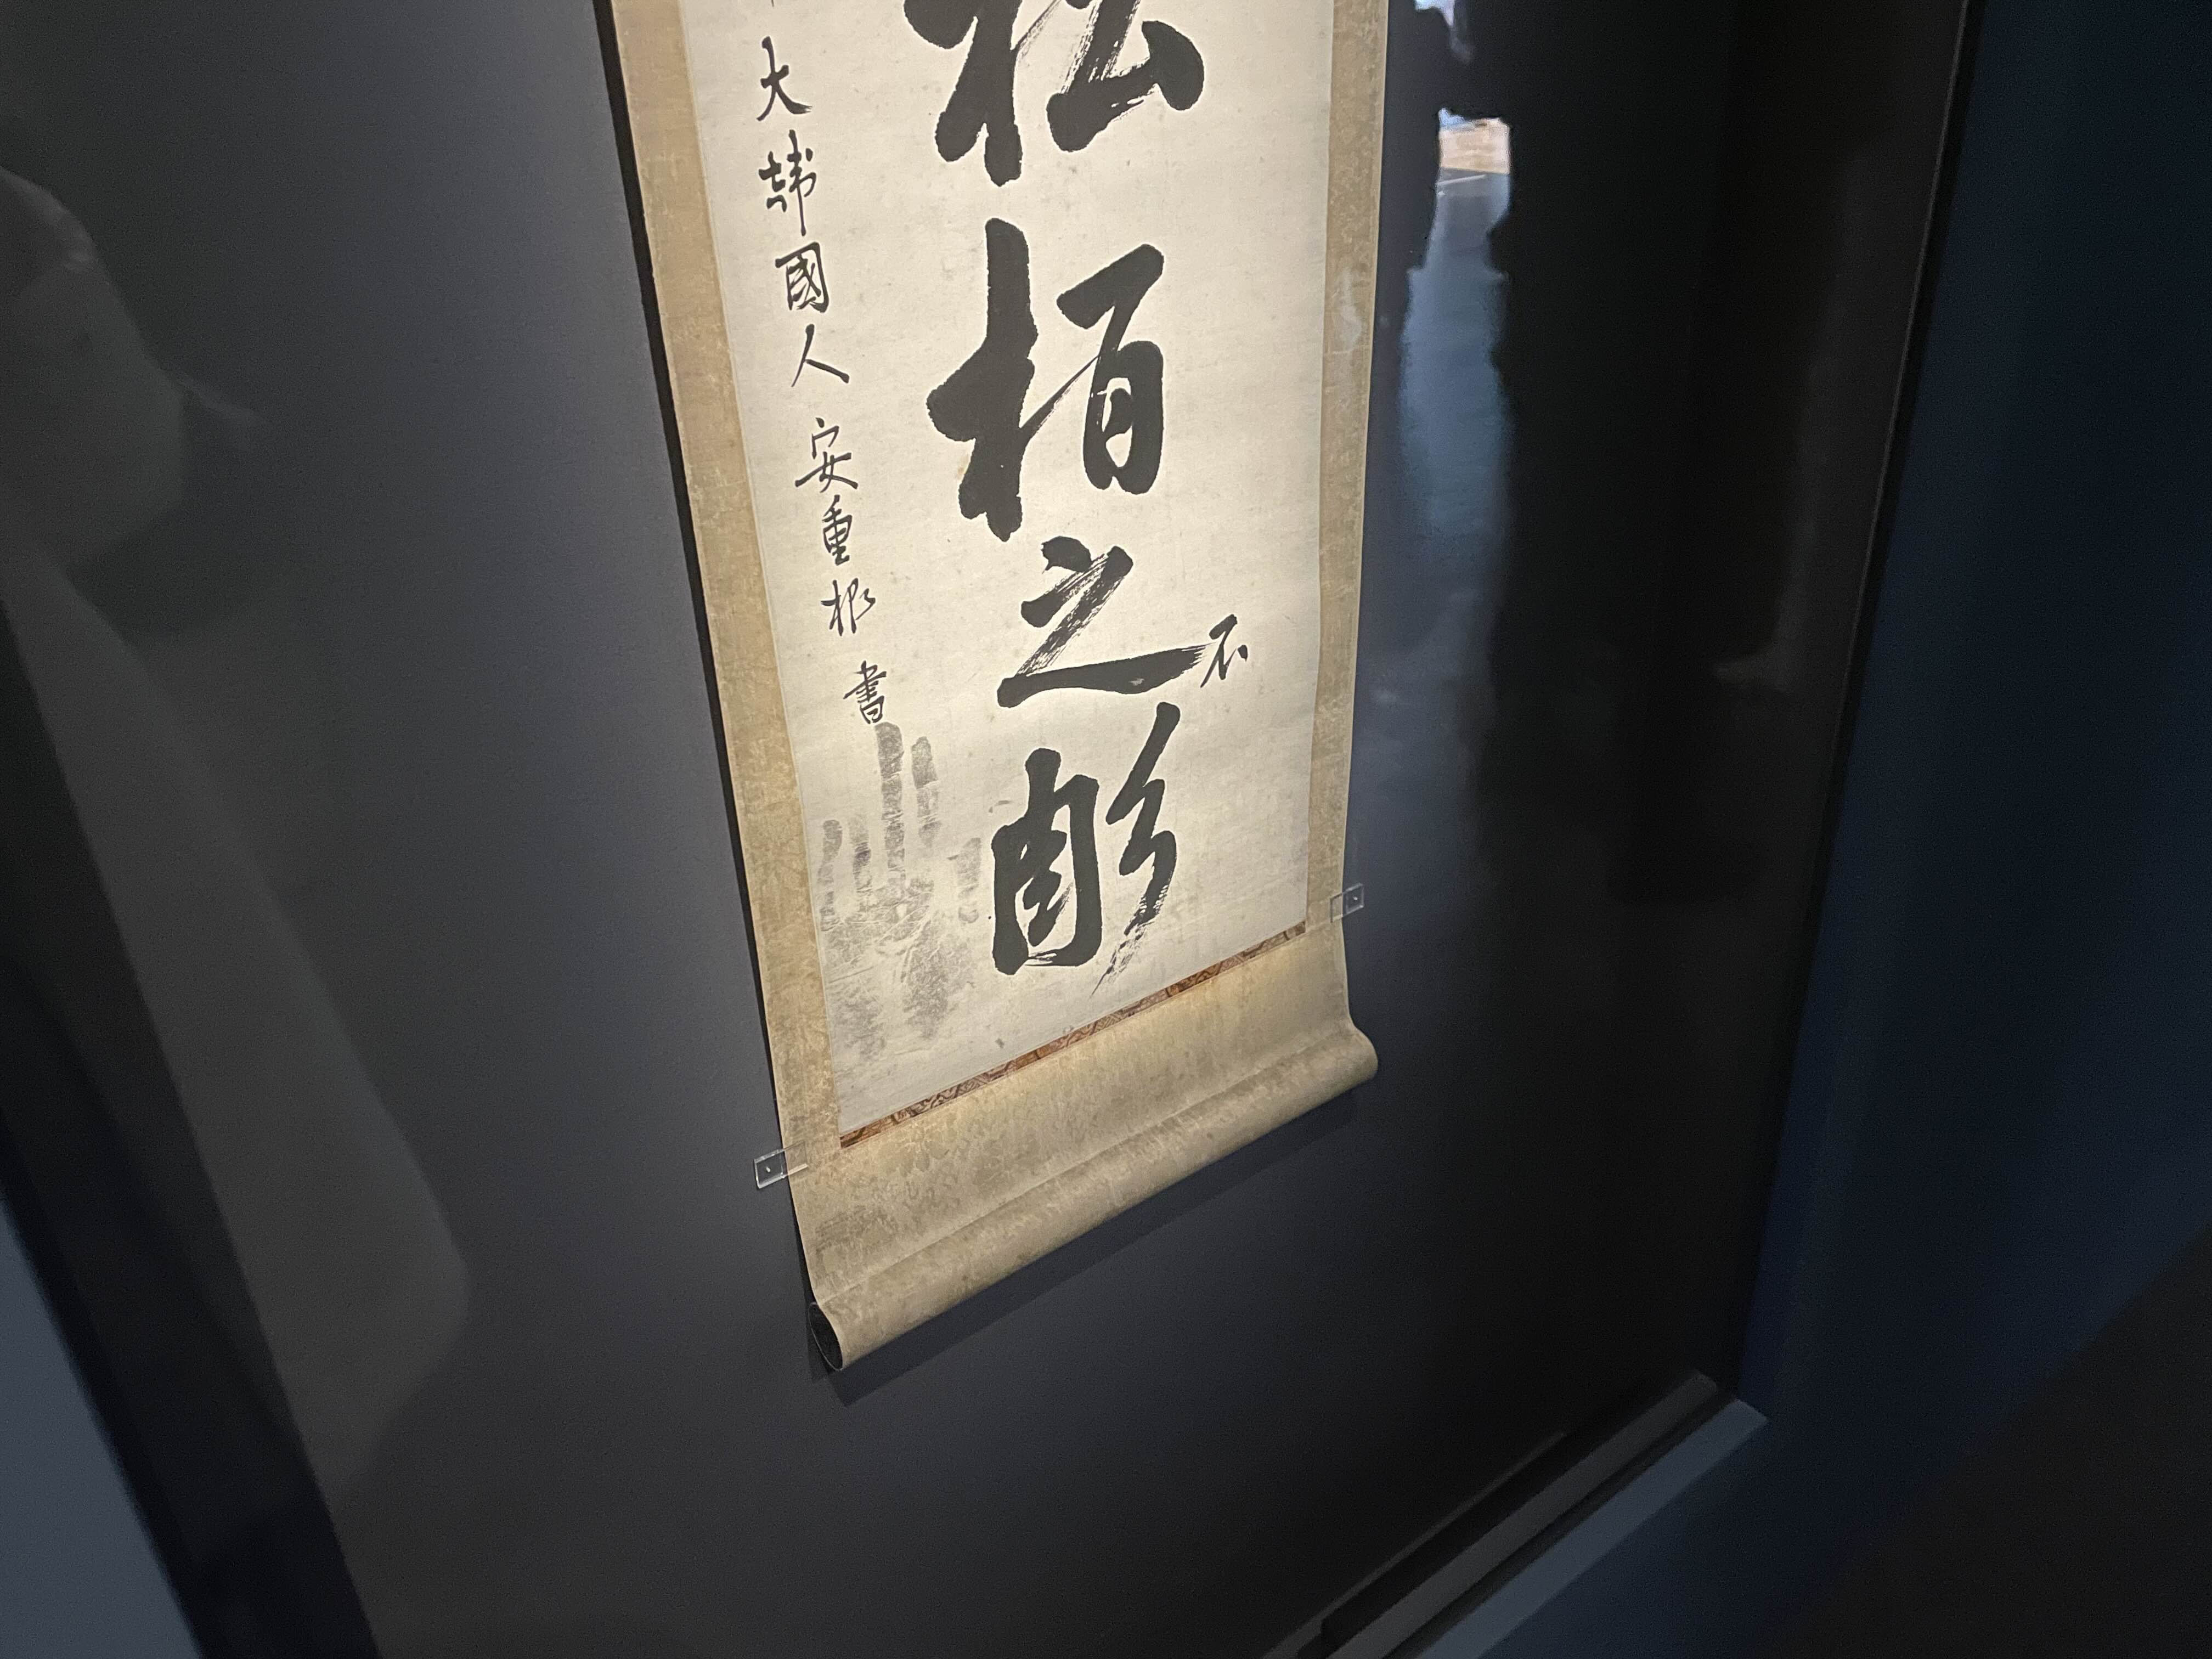 松栢之不彫
大韓國人 安重根 書